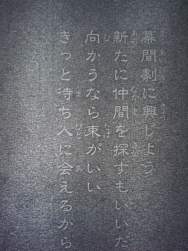 幕間劇に興じよう
新たに仲間を探すもいいだ
向かうなら東がいい
きっと待ち人に会えるから